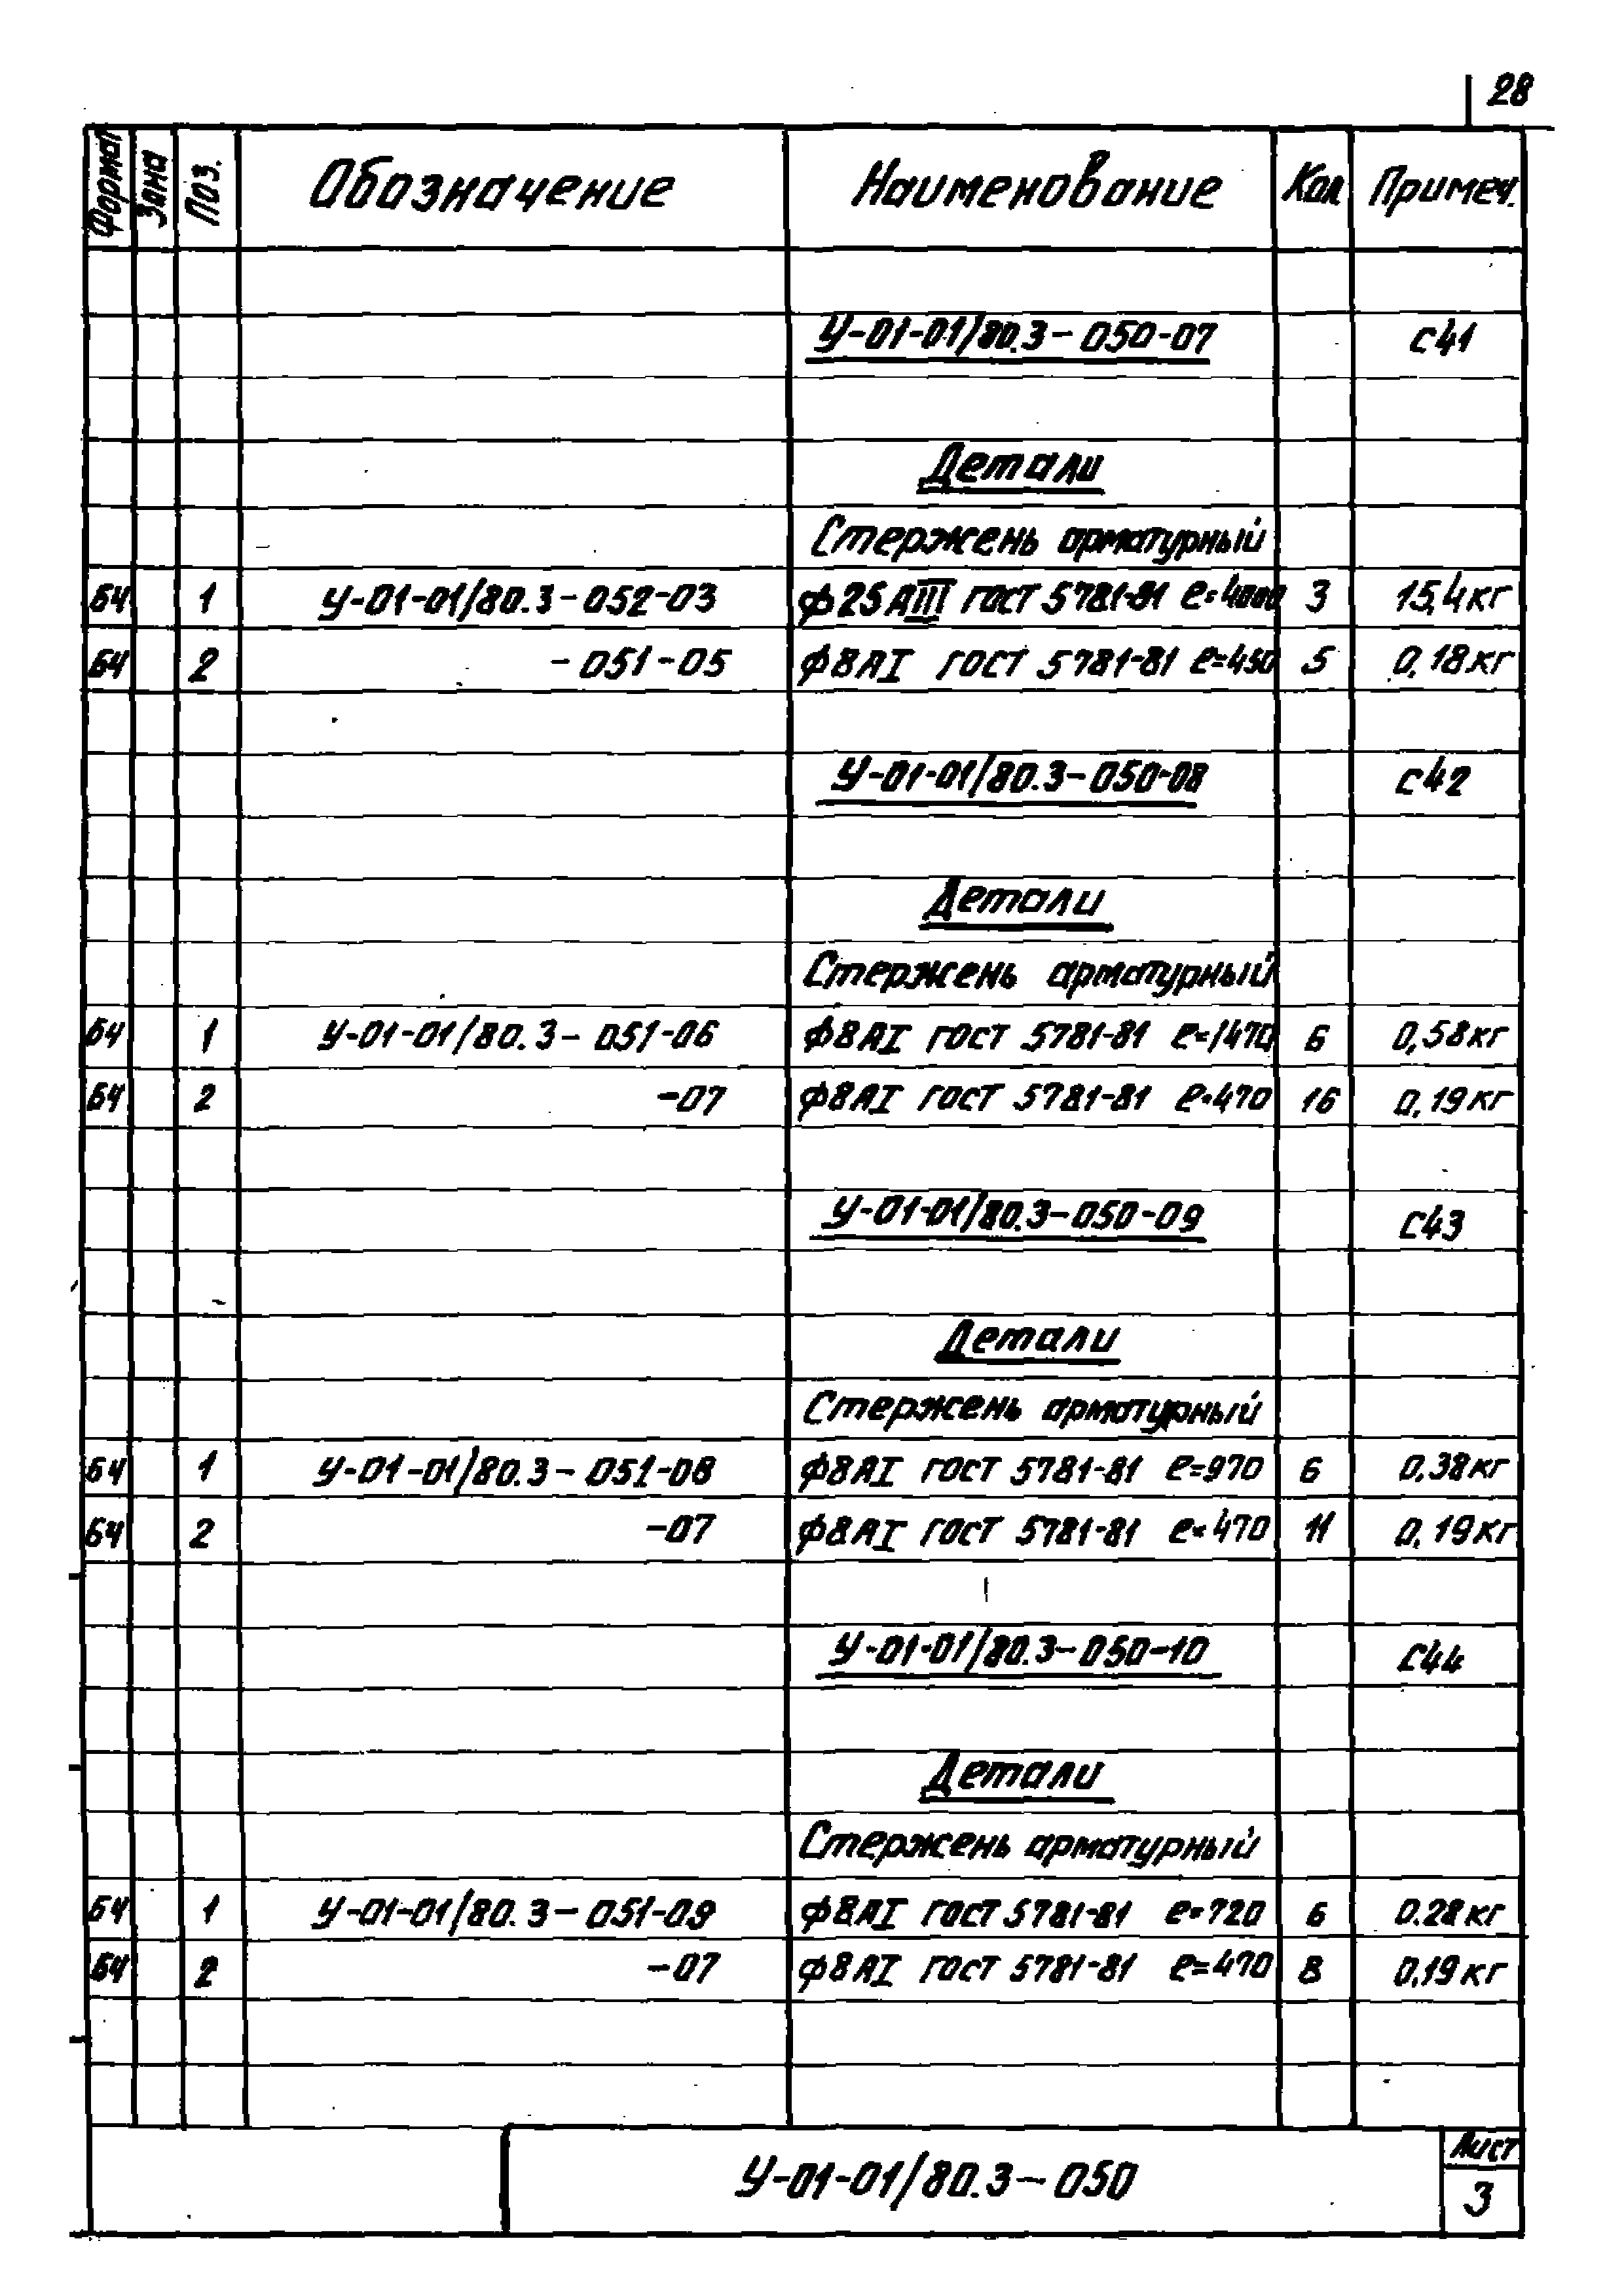 28
Формат Зона Поз. Обозначение Наименование Кол Примеч.
У-01-01/80.3-050-07 С41
Детали
Стержень арматурный
БЧ 1 У-01-01/80.3-052-03 Ф25АIII ГОСТ 5781-81 ℓ=4000 3 15,4кг
БЧ 2 -051-05 Ф8АI ГОСТ 5781-81 ℓ=450 5 0,18кг
У-01-01/80.3-050-08 С42
Детали
Стержень арматурный
БЧ 1 У-01-01/80.3-051-06 Ф8АI ГОСТ 5781-81 ℓ=1470 6 0,58кг
БЧ 2 -07 Ф8АI ГОСТ 5781-81 ℓ=470 16 0,19кг
У-01-01/80.3-050-09 С43
Детали
Стержень арматурный
БЧ 1 У-01-01/80.3-051-08 Ф8АI ГОСТ 5781-81 ℓ=970 6 0,38кг
БЧ 2 -07 Ф8АI ГОСТ 5781-81 ℓ=470 11 0,19кг
У-01-01/80.3-050-10 С44
Детали
Стержень арматурный
БЧ 1 У-01-01/80.3-051-09 Ф8АI ГОСТ 5781-81 ℓ=720 6 0.28кг
БЧ 2 -07 Ф8АI ГОСТ 5781-81 ℓ=470 8 0,19кг
У-01-01/80.3-050
Лист
3